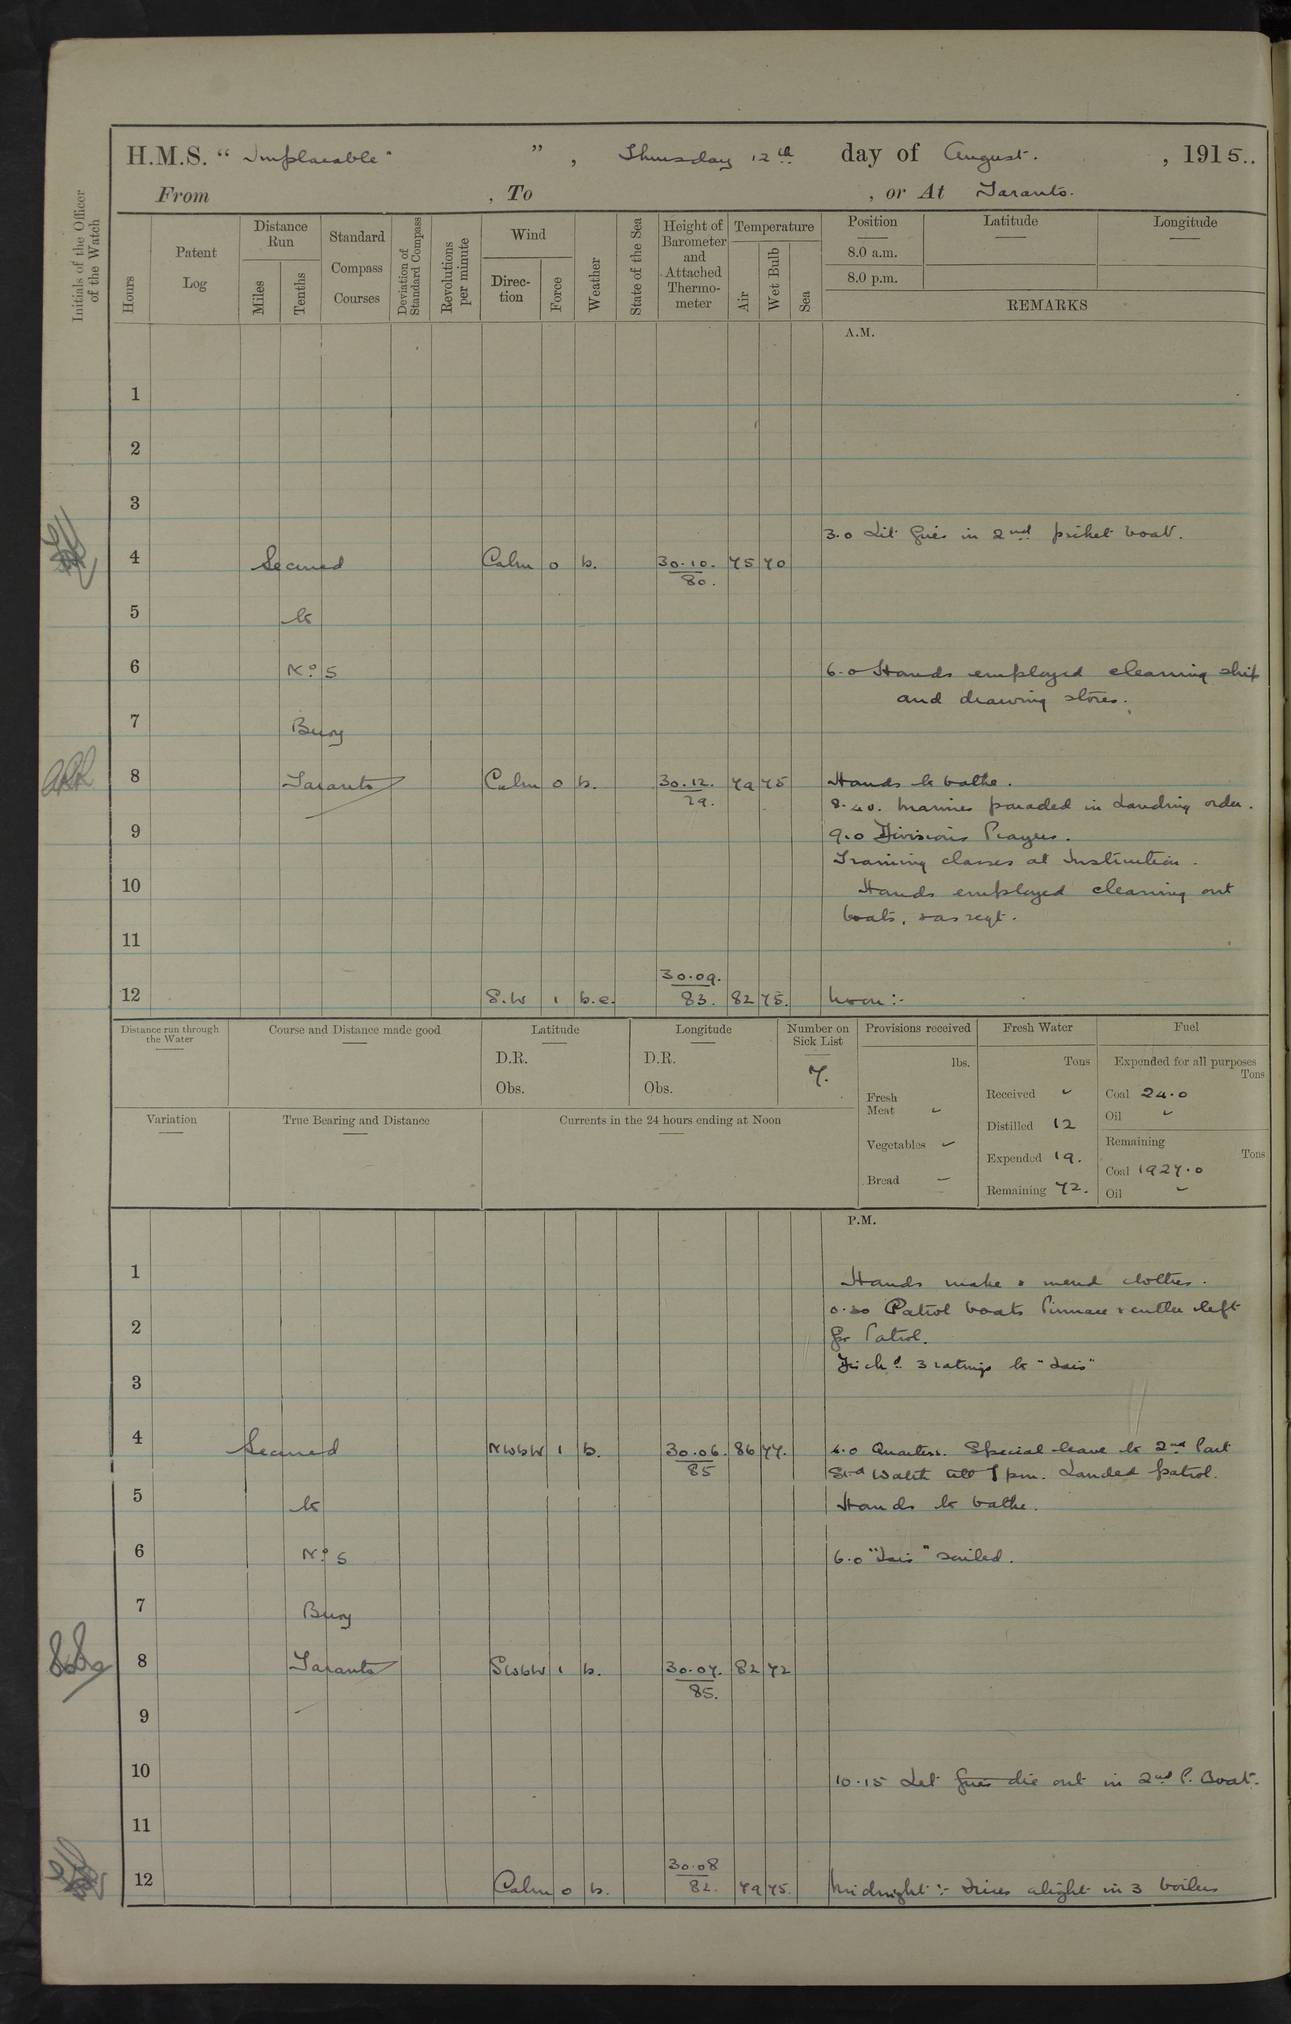 H.M.S. " Implacable " , Thursday 12th day of August. , 1915..
From , To , or At Taranto.
Initials of the Officer of the Watch
Hours
Patent Log
Distance Run
Miles
Tenths
Standard Compass Courses
Deviation of Standard Compass
Revolutions per minute
Wind
Direction
Force
Weather
State of the Sea
Height of Barometer and Attached Thermometer
Temperature
Air
Wet Bulb
Sea
Position
Latitude
Longitude
8.0 a.m.
8.0 p.m.
REMARKS
A.M.
1
2
3
3.0 Lit fires in 2nd picket boat.
4 Secured Calm 0 b. 30.10. 75 70
80.
5 to
6 No 5 6.0 Hands employed cleaning ship
and drawing stores.
7 Buoy
8 Taranto Calm 0 b. 30.12. 79 75 Hands to bathe.
79. 8.40. Marines paraded in Landing order.
9 9.0 Divisions Prayers.
Training classes at Instruction.
10 Hands employed cleaning out
boats, & as reqt.
11
30.09.
12 S.W 1 b.c. 83. 82 75. Noon:-
Distance run through the Water
Course and Distance made good
Latitude
D.R.
Obs.
Longitude
D.R.
Obs.
Number on Sick List
7.
Provisions received
lbs.
Fresh Meat
Vegetables
Bread
Fresh Water
Tons
Received
Distilled 12
Expended 19.
Remaining 72.
Fuel
Expended for all purposes
Tons
Coal 24.0
Oil
Remaining
Tons
Coal 1927.0
Oil
Variation
True Bearing and Distance
Currents in the 24 hours ending at Noon
P.M.
1 Hands make & mend clothes.
0.30 Patrol boats Pinnace & cutter left
2 for Patrol.
Disch'd 3 ratings to "Isis"
3
4 Secured NWbW 1 b. 30.06. 86 77. 4.0 Quarters. Special leave to 2nd Part
85 Stbd Watch till 7 pm. Landed patrol.
5 to Hands to bathe.
6 No 5 6.0 "Isis" sailed.
7 Buoy
8 Taranto SWbW 1 b. 30.07. 82 72
85.
9
10 10.15 Let fires die out in 2nd P. Boat.
11
30.08
12 Calm 0 b. 82. 79 75. Midnight:- Fires alight in 3 boilers